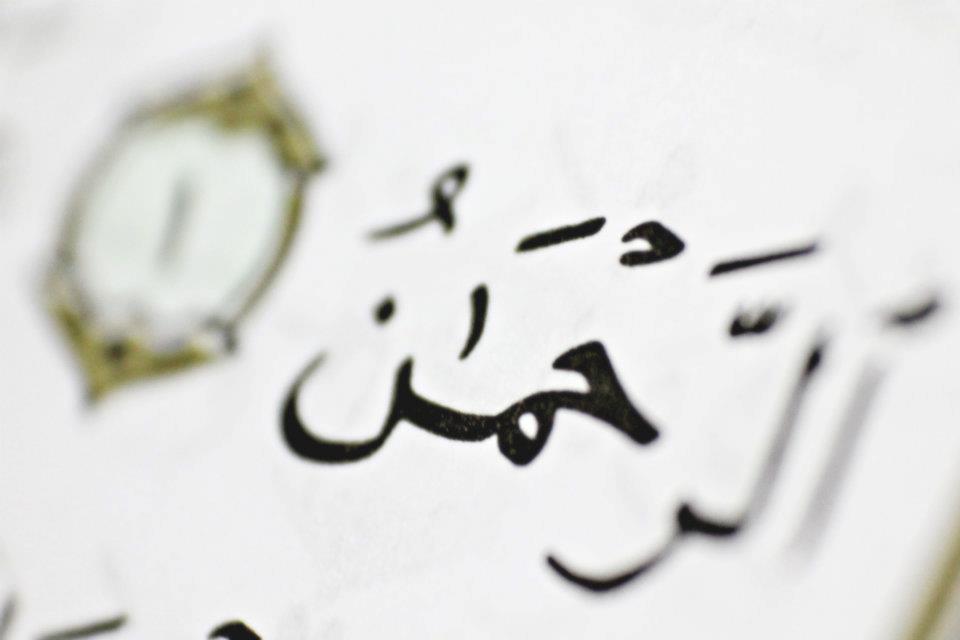 الرَّحْمَٰنُ ١